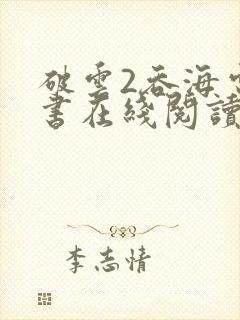 破雲2吞海
書在綫閱讀
李志情